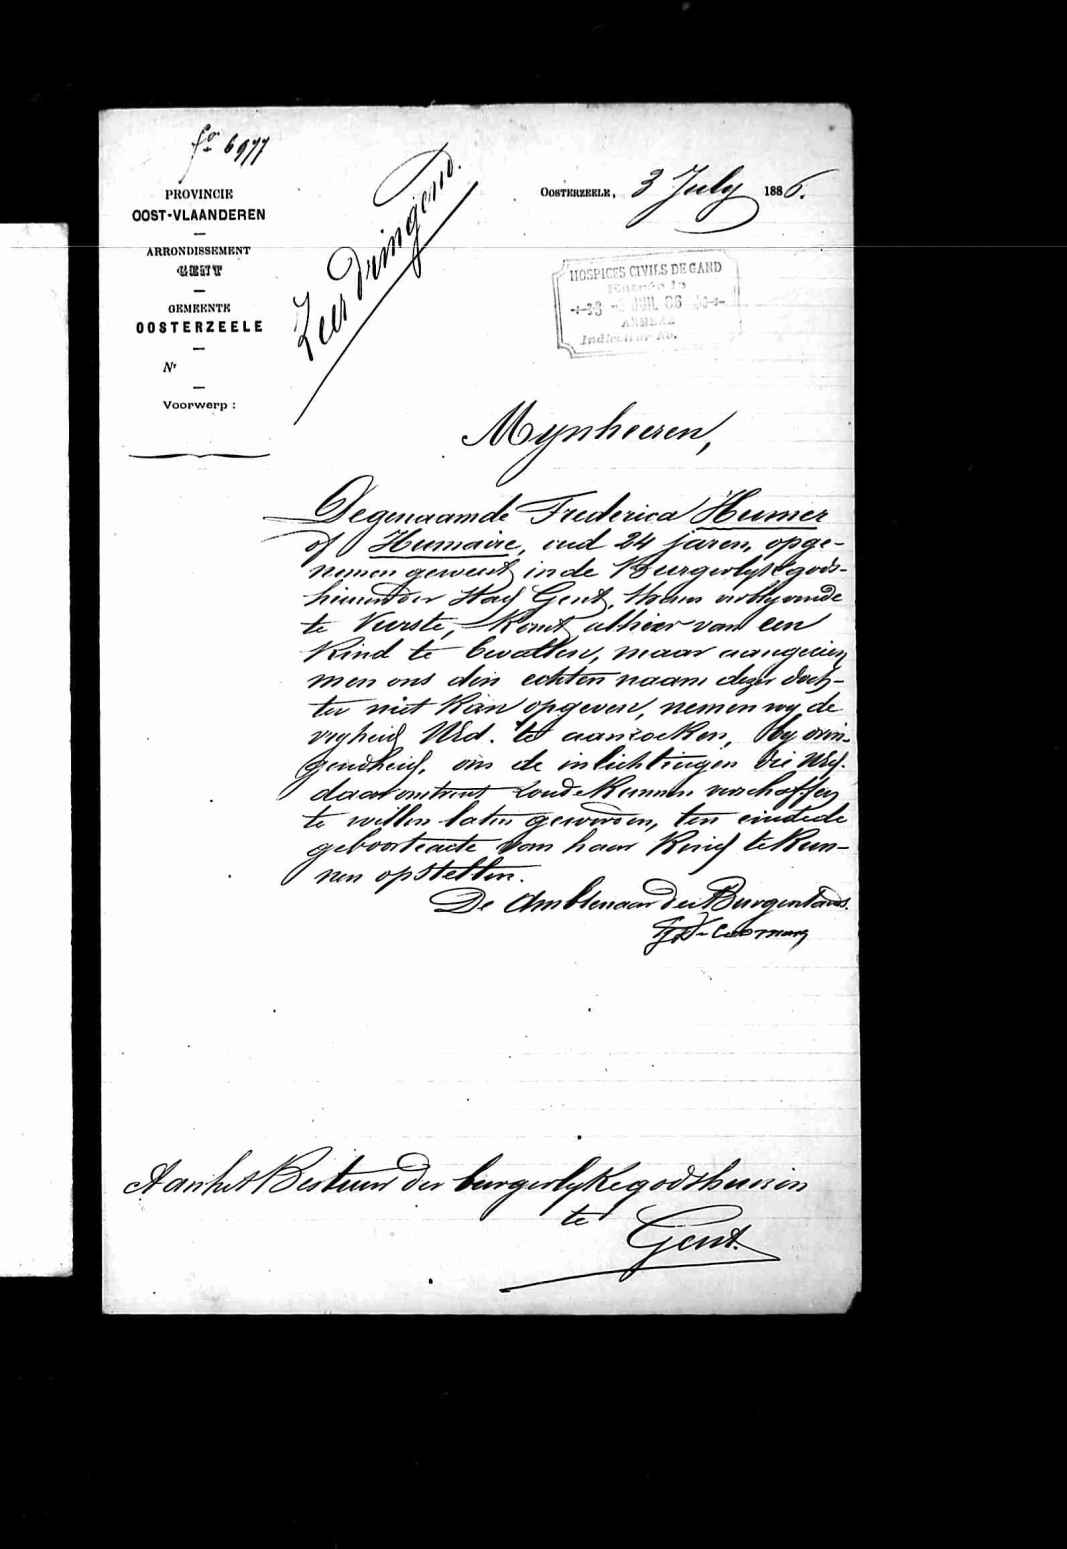 fo 6977
PROVINCIE
OOST-VLAANDEREN
ARRONDISSEMENT
GENT
GEMEENTE
OOSTERZEELE
Nr
Voorwerp :
Zeer dringend.
OOSTERZEELE, 3 July 1886.
HOSPICES CIVILS DE GAND
JUIL. 86
ANNEXE
Indicateur No.
Mynheeren,
Degenaamde Frederica Humer
of Humaire, oud 24 jaren, opge-
nomen geweest in de Burgerlyke gods-
huizen der Stad Gent, thans verblyvende
te Vurste, komt alhier van een
Kind te bevallen, maar aangezien
men ons den echten naam dezer doch-
ter niet kan opgeven, nemen wy de
vryheid UEd. te aanzoeken, by drin-
gendheid, ons de inlichtingen die UEd.
daaromtrent zoude kunnen verschaffen
te willen laten geworden, ten einde de
geboorteacte van haar Kind te kun-
nen opstellen.
De Ambtenaar der Burgerstand.
Aan het Bestuur der burgerlyke godshuizen
te
Gent.